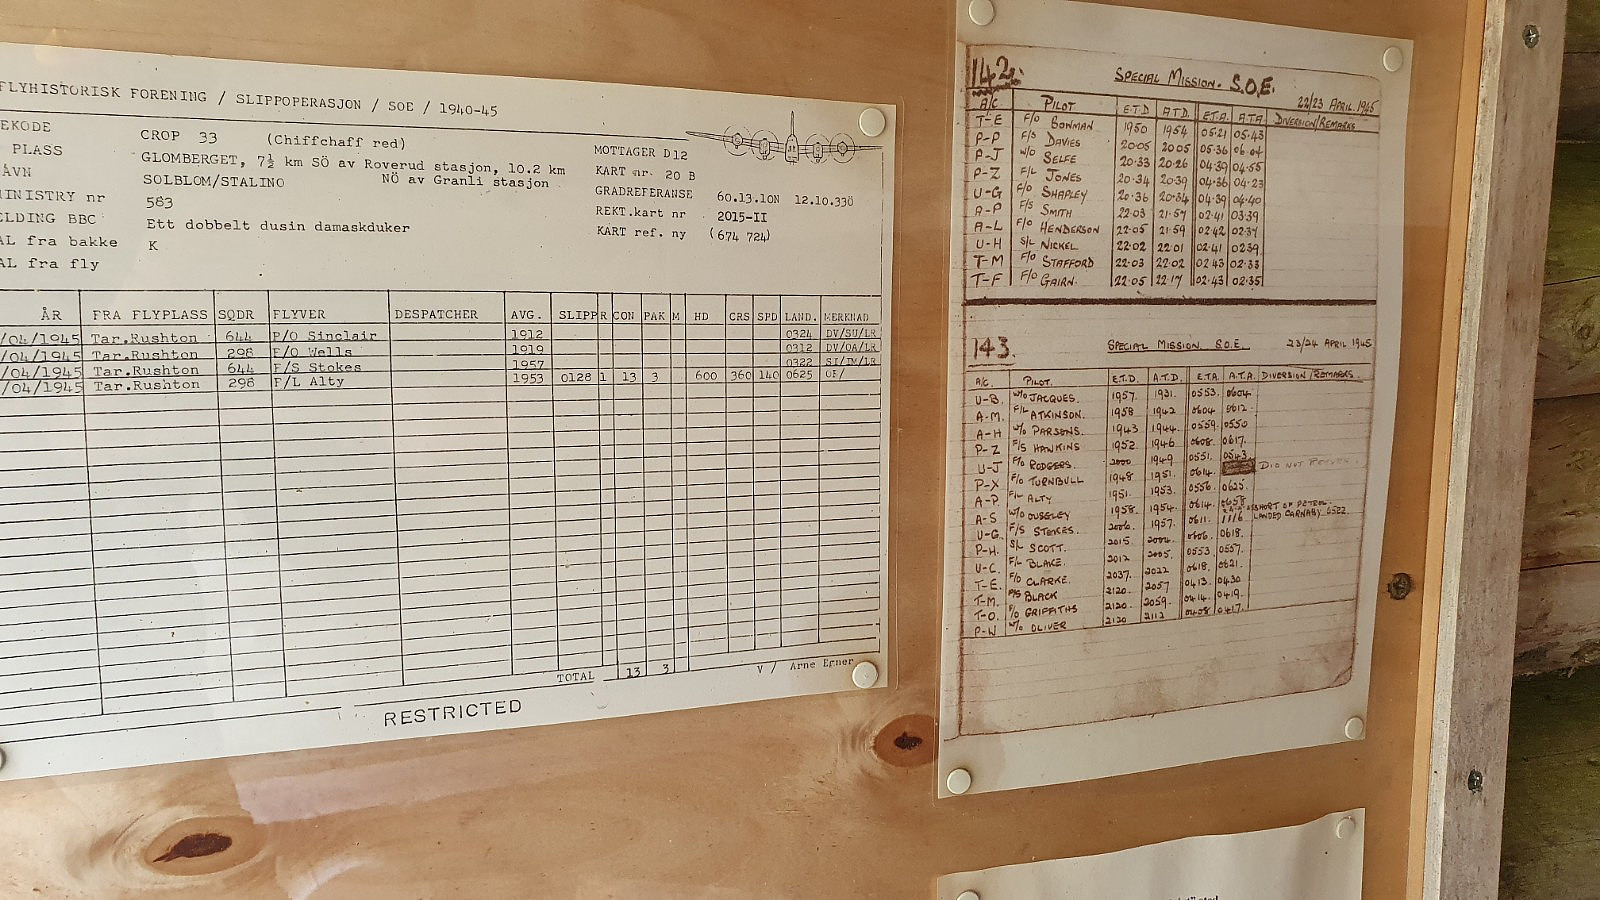 FLYHISTORISK FORENING / SLIPPOPERASJON / SOE / 1940-45
EKODE CROP 33 (Chiffchaff red) MOTTAGER D12
PLASS GLOMBERGET, 7½ km SÖ av Roverud stasjon, 10.2 km KART nr. 20 B
NÖ av Granli stasjon
ÅVN SOLBLOM/STALINO GRADREFERANSE 60.13.10N 12.10.33Ö
MINISTRY nr 583 REKT.kart nr 2015-II
ELDING BBC Ett dobbelt dusin damaskduker KART ref. ny (674 724)
AL fra bakke K
AL fra fly
ÅR FRA FLYPLASS SQDR FLYVER DESPATCHER AVG. SLIPP R CON PAK M HD CRS SPD LAND. MERKNAD
/04/1945 Tar.Rushton 644 P/O Sinclair 1912 0324 DV/SU/LR
/04/1945 Tar.Rushton 298 F/O Wells 1919 0312 DV/OA/LR
/04/1945 Tar.Rushton 644 F/S Stokes 1957 0322 SI/TM/LR
/04/1945 Tar.Rushton 298 F/L Alty 1953 0128 1 13 3 600 360 140 0625 OE/
TOTAL 13 3 V / Arne Egner
RESTRICTED
142. SPECIAL MISSION. S.O.E. 22/23 APRIL. 1945
A/C PILOT E.T.D A.T.D. E.T.A. A.T.A. DIVERSION/REMARKS
T-E F/O BOWMAN 1950 1954 05.21 05.43
P-P F/S DAVIES 20.05 20.05 05.36 06.04
A-J W/O SELFE 20.33 20.26 04.39 04.55
P-Z F/L JONES 20.34 20.39 04.36 04.23
U-G F/O SHAPLEY 20.36 20.34 04.39 04.40
A-P F/S SMITH 22.03 21.57 02.41 03.39
A-L F/O HENDERSON 22.05 21.59 02.42 02.37
U-H S/L NICKEL 22.02 22.01 02.41 02.39
T-M F/O STAFFORD 22.03 22.02 02.43 02.33
T-F F/O GAIRN. 22.05 22.17 02.43 02.35
143. SPECIAL MISSION. S.O.E. 23/24 APRIL 1945
A/C. PILOT. E.T.D. A.T.D. E.T.A. A.T.A. DIVERSION/REMARKS.
U-B. W/O JACQUES. 1957. 1931. 0553. 0604.
A-M. F/L ATKINSON. 1958 1942 0604 0612.
A-H W/O PARSONS. 1943 1944. 0559. 0550
P-Z F/S HAWKINS 1952. 1946 0608. 0617.
U-J F/O RODGERS. 2000 1949 0551. 0543.
P-X F/O TURNBULL 1948 1951. 0614. DID NOT RETURN.
A-P. F/L ALTY 1951. 1953. 0556. 0625.
A-S W/O OUSELEY 1958. 1954. 0614. 0658 SHORT OF PETROL.
U-G. F/S STOKES. 2006. 1957. 0611. 1116 LANDED CARNABY 0522.
P-H. S/L SCOTT. 2015. 2004. 0606. 0618.
U-C. F/L BLAKE. 2012 2005. 0553. 0557.
T-E. F/O CLARKE. 2037. 2022 0618. 0621.
T-M. F/S BLACK 2120. 2057 0413. 0430
T-O. F/O GRIFFITHS 2120. 2059. 0414. 0419.
P-W W/O OLIVER 2120 2112 0408. 0417.